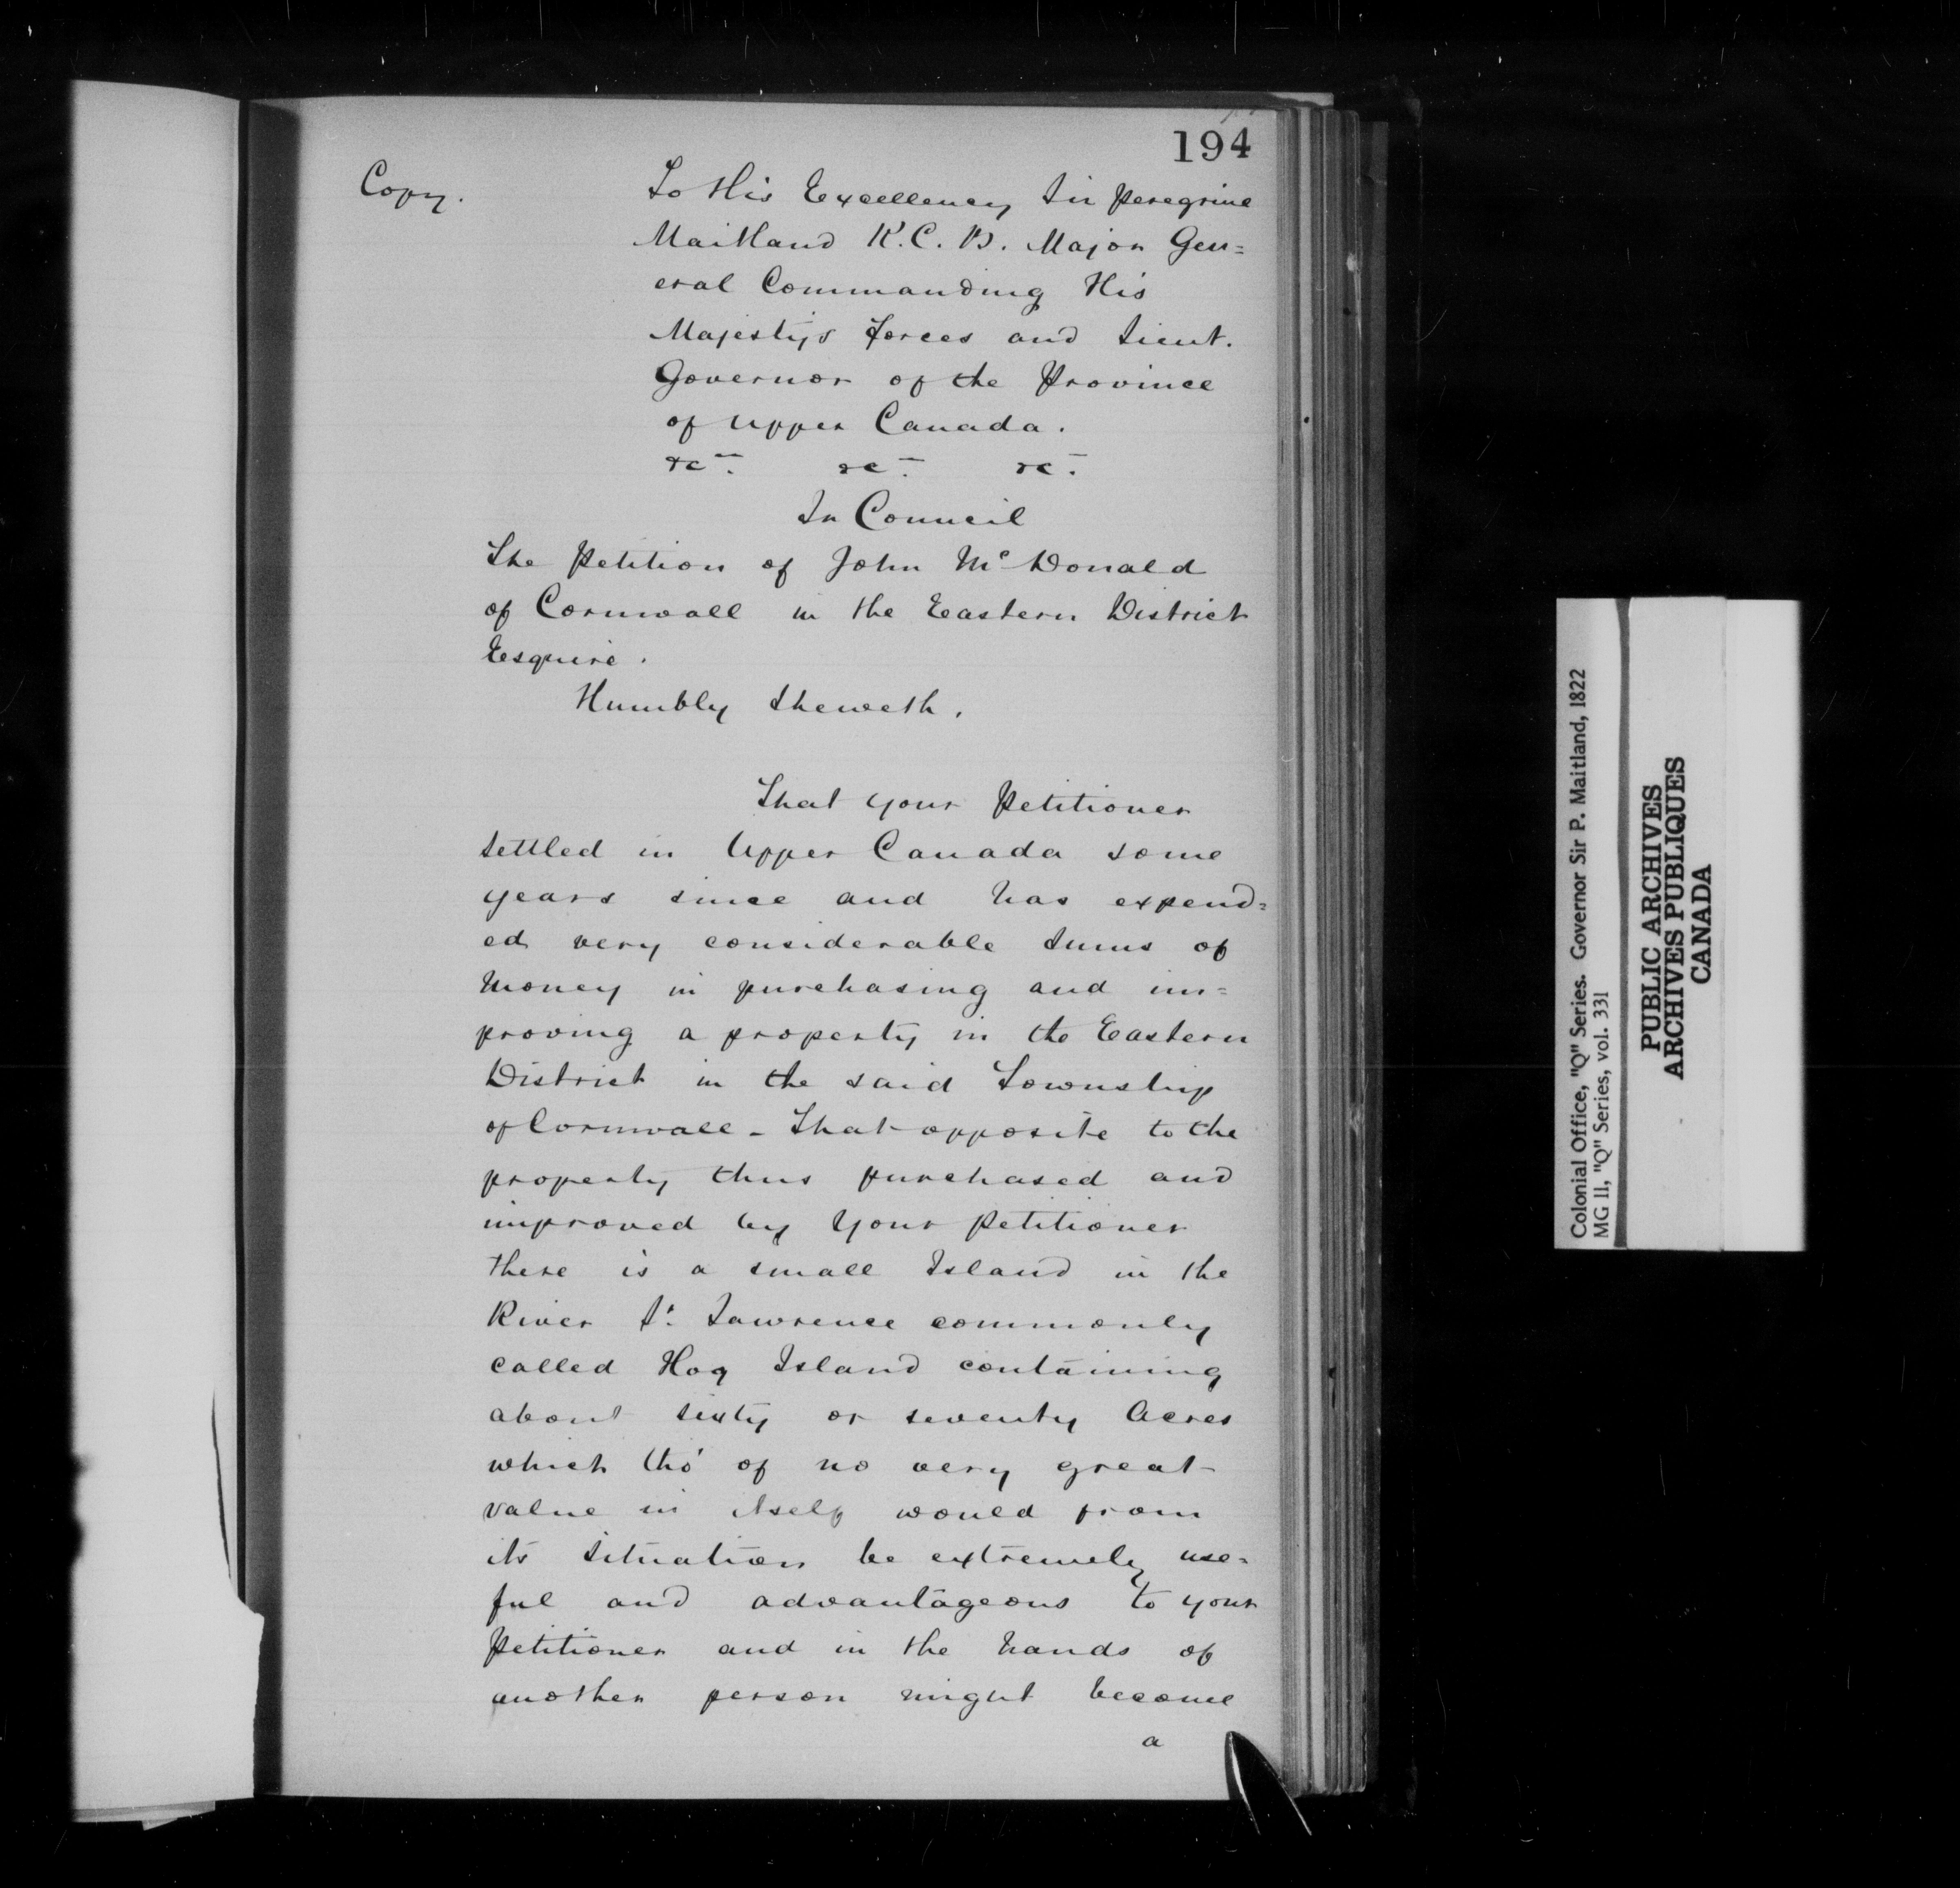 194
Copy.
To His Excellency Sir Peregrine
Maitland K.C.B. Major Gen=
eral Commanding His
Majesty's Forces and Lieut.
Governor of the Province
of Upper Canada.
&c. &c. &c.
In Council
The Petition of John McDonald
of Cornwall in the Eastern District
Esquire.
Humbly Sheweth.
That your Petitioner
settled in Upper Canada some
years since and has expend=
ed very considerable sums of
money in purchasing and im=
proving a property in the Eastern
District in the said Township
of Cornwall - That opposite to the
property thus purchased and
improved by Your Petitioner
there is a small Island in the
River St. Lawrence commonly
called Hog Island containing
about sixty or seventy Acres
which tho' of no very great
value in itself would from
its situation be extremely use=
ful and advantageous to your
Petitioner and in the hands of
another person might become
a
Colonial Office, "Q" Series. Governor Sir P. Maitland, 1822
MG 11, "Q" Series, vol. 331
PUBLIC ARCHIVES
ARCHIVES PUBLIQUES
CANADA